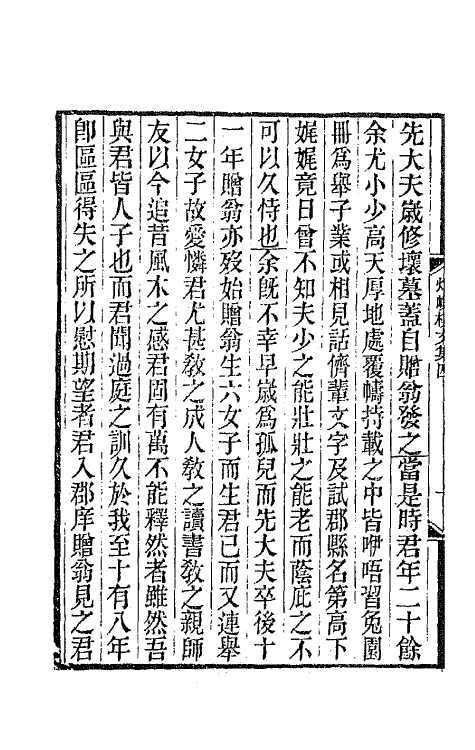 先大夫歲修壞墓蓋自贈翁發之當是時君年二十餘
余尤小少高天厚地處覆幬持載之中皆咿唔習兔園
冊爲舉子業或相見話儕輩文字及試郡縣名第高下
娓娓竟日曾不知夫少之能壯壯之能老而蔭庇之不
可以久恃也余旣不幸早歲爲孤兒而先大夫卒後十
一年贈翁亦歿始贈翁生六女子而生君已而又連舉
二女子故愛憐君尤甚敎之成人敎之讀書敎之親師
友以今追昔風木之感君固有萬不能釋然者雖然吾
與君皆人子也而君聞過庭之訓久於我至十有八年
卽區區得失之所以慰期望者君入郡庠贈翁見之君